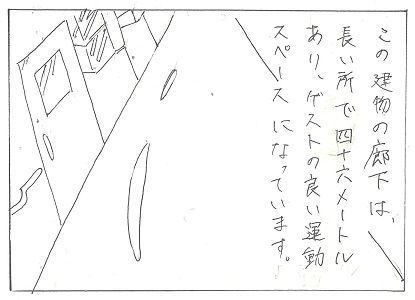 この建物の廊下は、
長い所で四十六メートル
あり、ゲストの良い運動
スペースになっています。